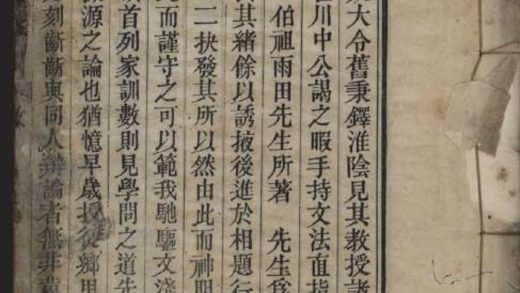 大令舊秉鐸淮陰見其教授諸
川中公謁之暇手持文法直指
伯祖雨田先生所著　先生為
其緒餘以誘掖後進於相題行
二抉發其所以然由此而神明
而謹守之可以範我馳驅文淺
首列家訓數則見學問之道先
源之論也猶憶早歲授徒鄉里
刻斷斷與同人辯論者無非